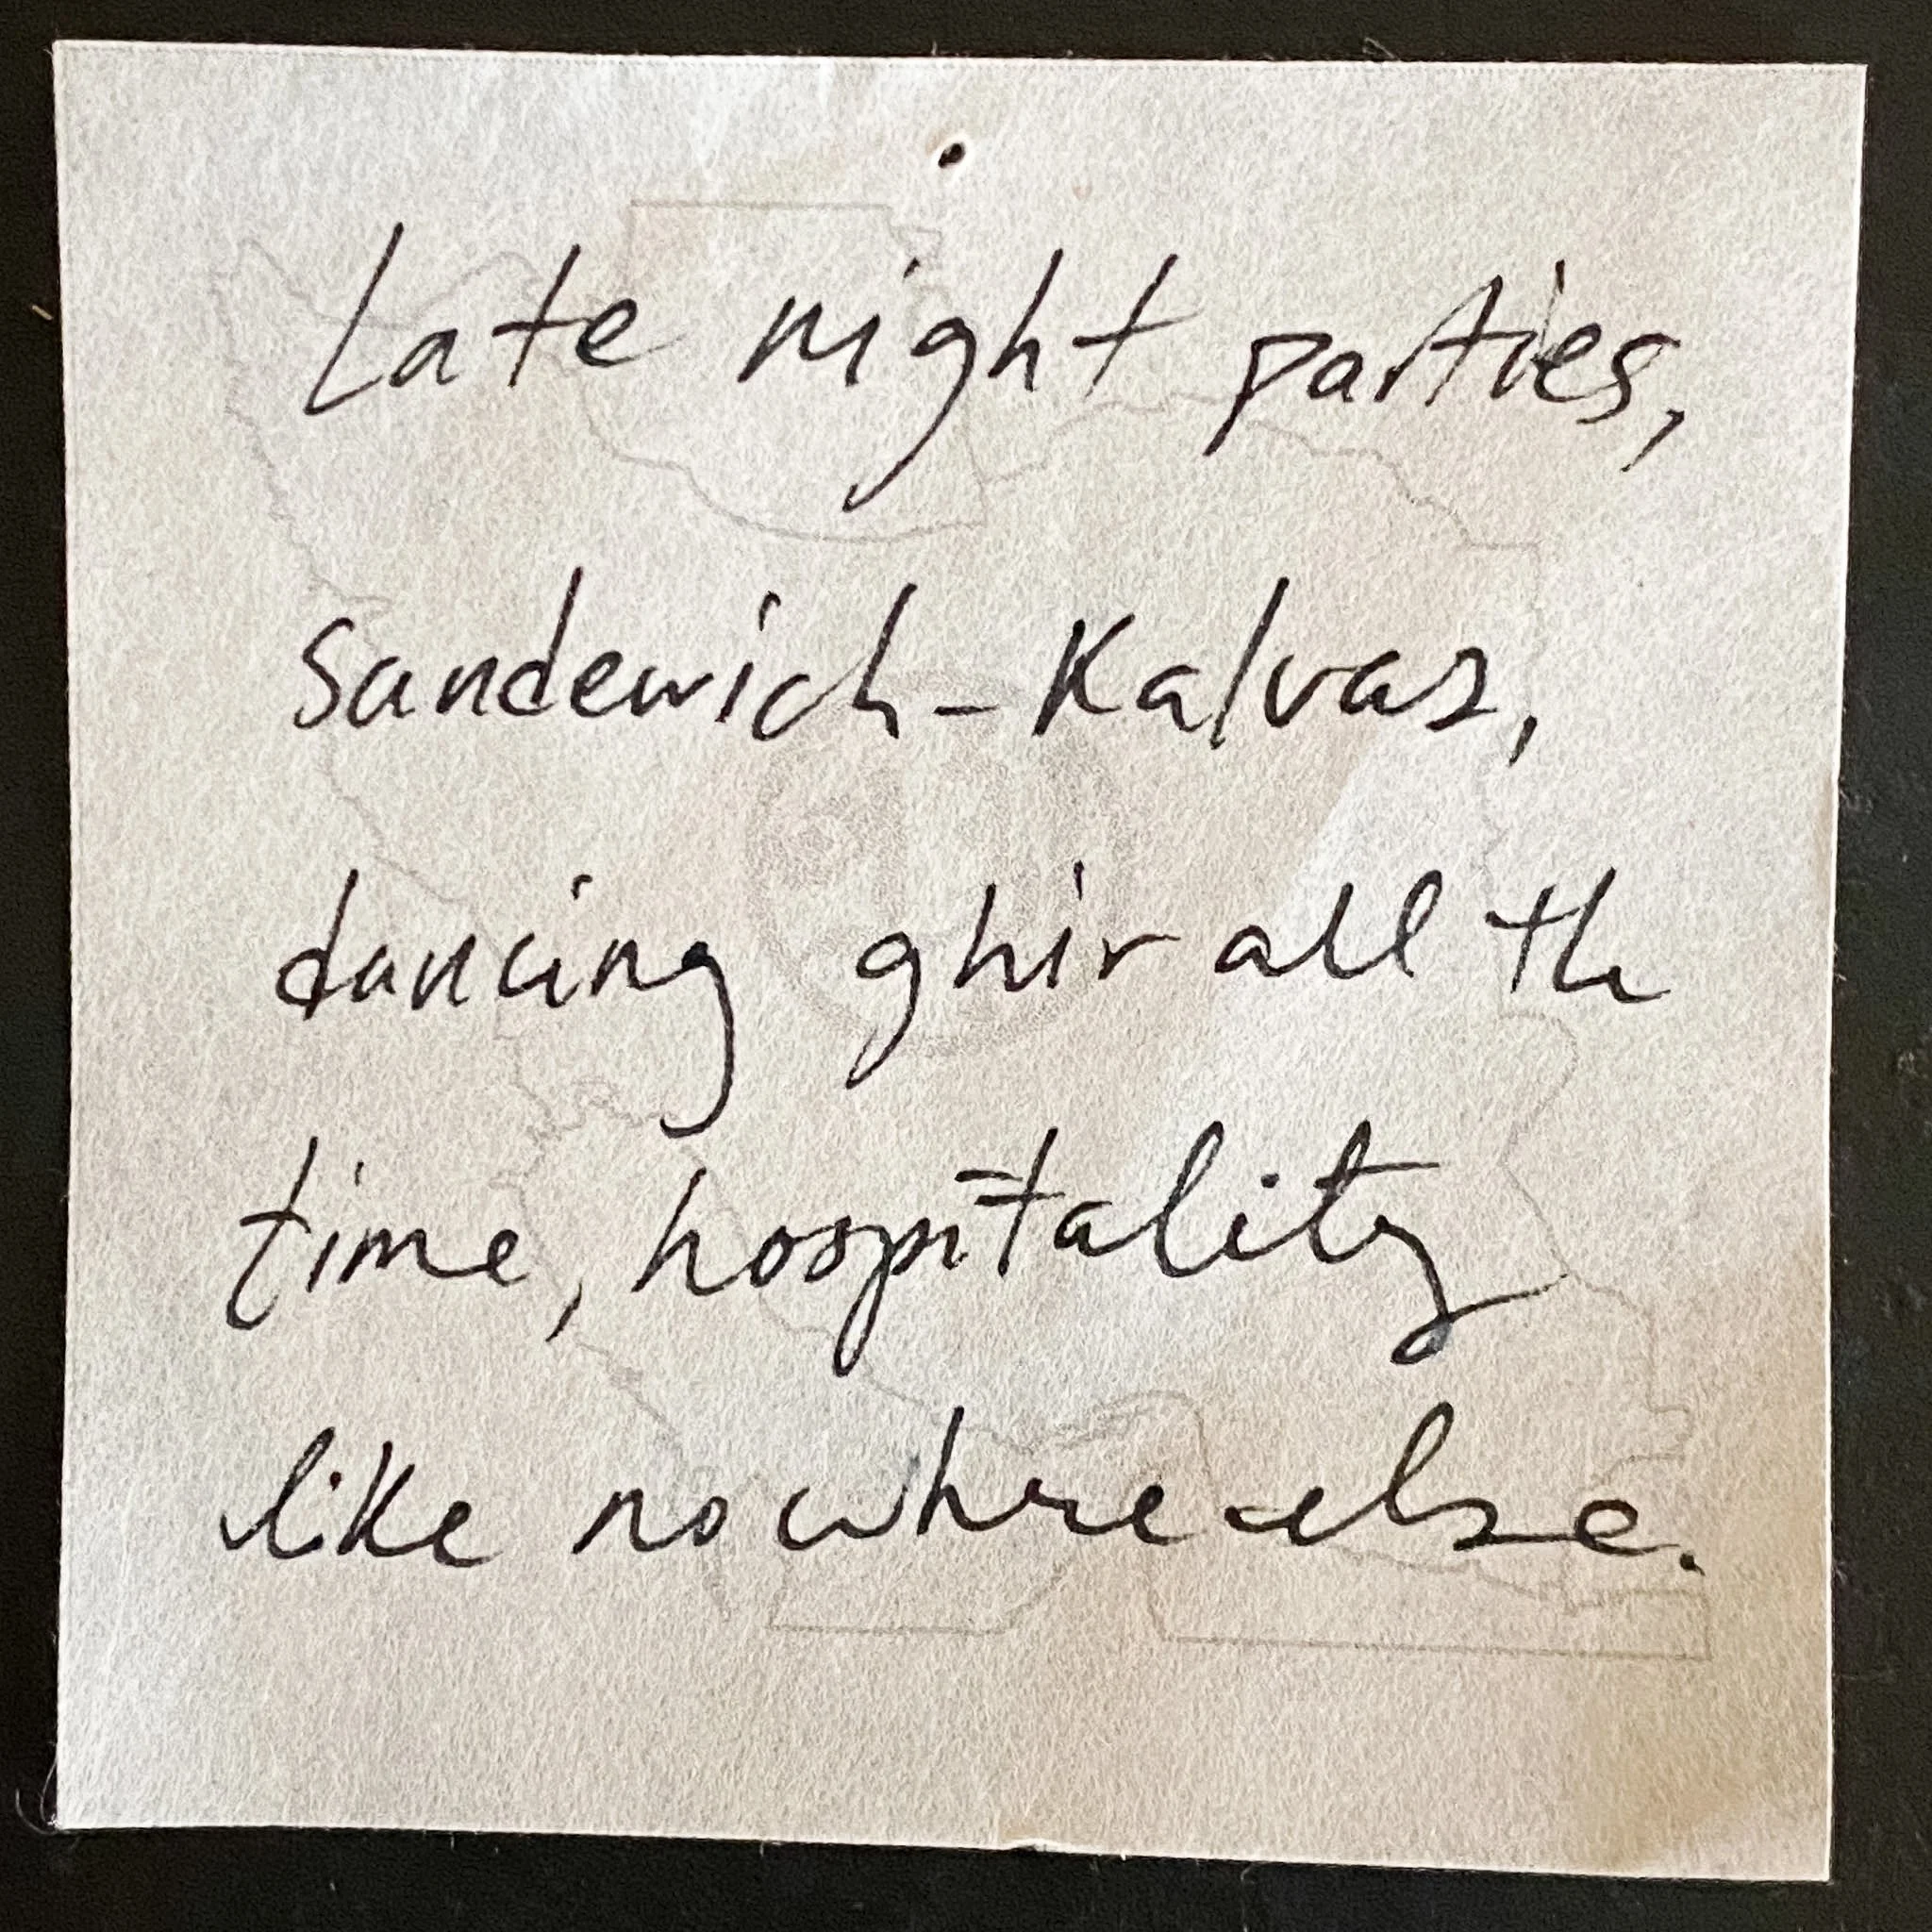 Late night parties,
Sandewich-Kalvas,
dancing ghir all the
time, hospitality
like nowhre else.